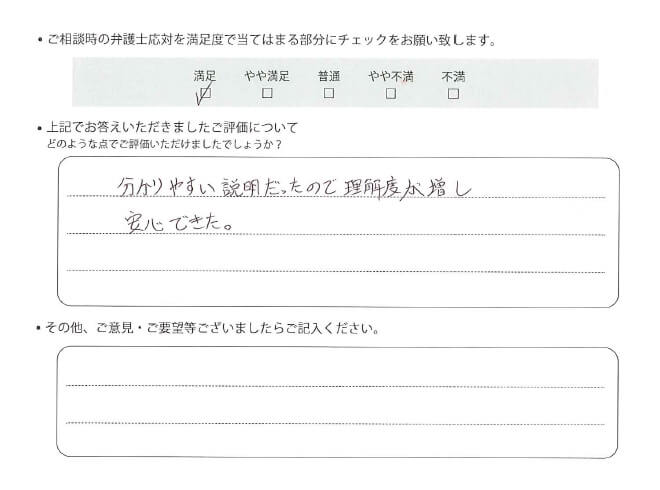 • ご相談時の弁護士応対を満足度で当てはまる部分にチェックをお願い致します。
満足 やや満足 普通 やや不満 不満
☑ □ □ □ □
• 上記でお答えいただきましたご評価について
どのような点でご評価いただけましたでしょうか？
分かりやすい説明だったので理解度が増し
安心できた。
• その他、ご意見・ご要望等ございましたらご記入ください。